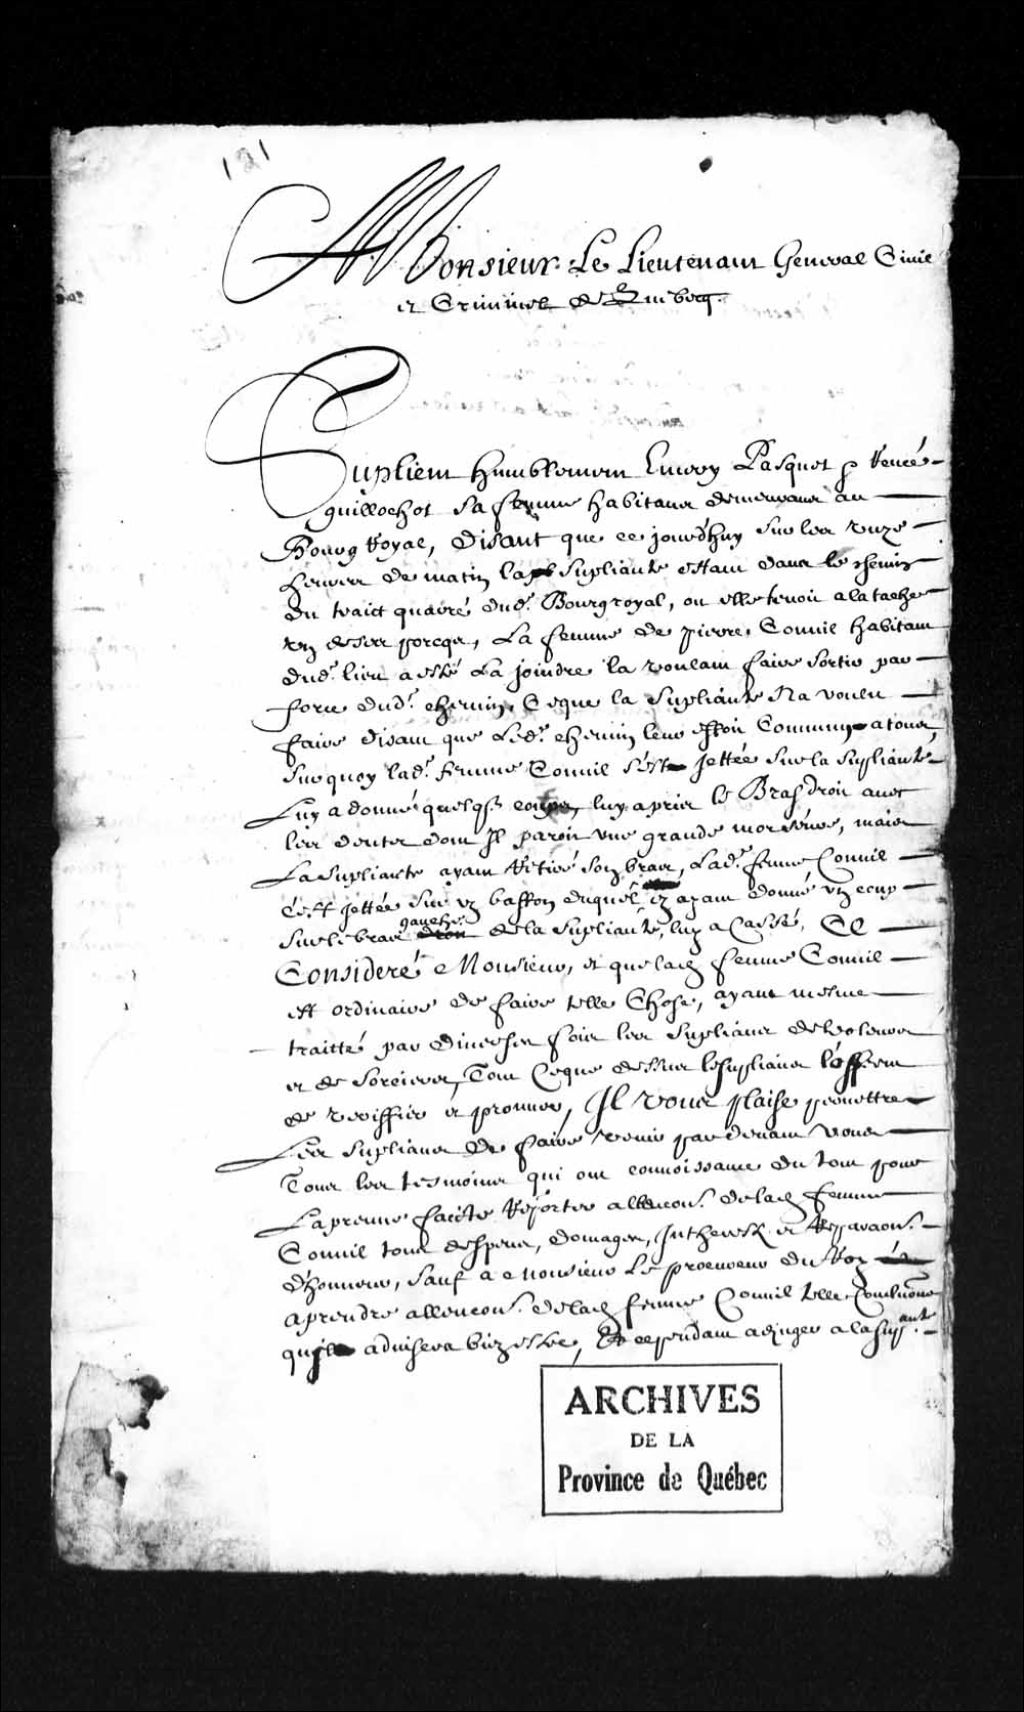 181
A Monsieur Le Lieutenant General Civil
et Criminel de Quebecq.
Suplient humblement Emery Pasquet et Renée
Guillochot sa femme habitans demeurans au
Bourg Royal, disant que ce jourdhuy sur les unze
heures de matin la supliante estant dans le chemin
du traict quarré dud. Bourg royal, ou elle tenoit a la tache
un de ses porcqs, La femme de pierre Connil habitant
dud. lieu a esté La joindre la voulant faire sortir par
force dud. chemin, Ceque la supliante N'a voulu
faire disant que Led. chemin leur estoit Commun atous,
Surquoy lad. femme Connil s'est jettée sur la supliante
Luy a donné quelqs. coups, luy a pris le Bras droit avec
les dents dont Il paroit une grande morsure, mais
La supliante ayant Retiré son bras, Lad. femme Connil
s'est jettée sur un baston duquel en ayant donné un coup
sur le bras gauche droit de la supliante, luy a Cassé, Ce
Consideré Monsieur, et que lad. femme Connil
est ordinaire de faire telle Chose, ayant mesme
traitté par diverses fois les suplians de voleurs
et de sorciers, Tout Ceque dessus les suplians s'offrent
de veriffier et prouver, Il vous plaise permettre
Les suplians de faire venir par devant vous
Tous les tesmoins qui ont connoissance du tout pour
La preuve faicte Reporter allencon. de lad. femme
Connil tous despens, domages, Intherests et Reparaons.
d'honneur, sauf a Monsieur Le procureur du Roy
a prendre allencon. de lad. femme Connil telle Conclusions
quil advisera bien estre, Et cependant adjuger a la sup.ante
ARCHIVES
DE LA
Province de Québec